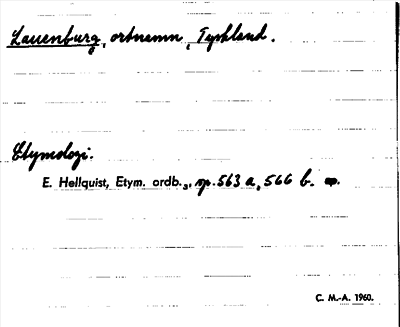 Lauenburg, ortnamn, Tyskland.
Etymologi.
E. Hellquist, Etym. ordb., sp. 563 a, 566 b.
C. M.-A. 1960.